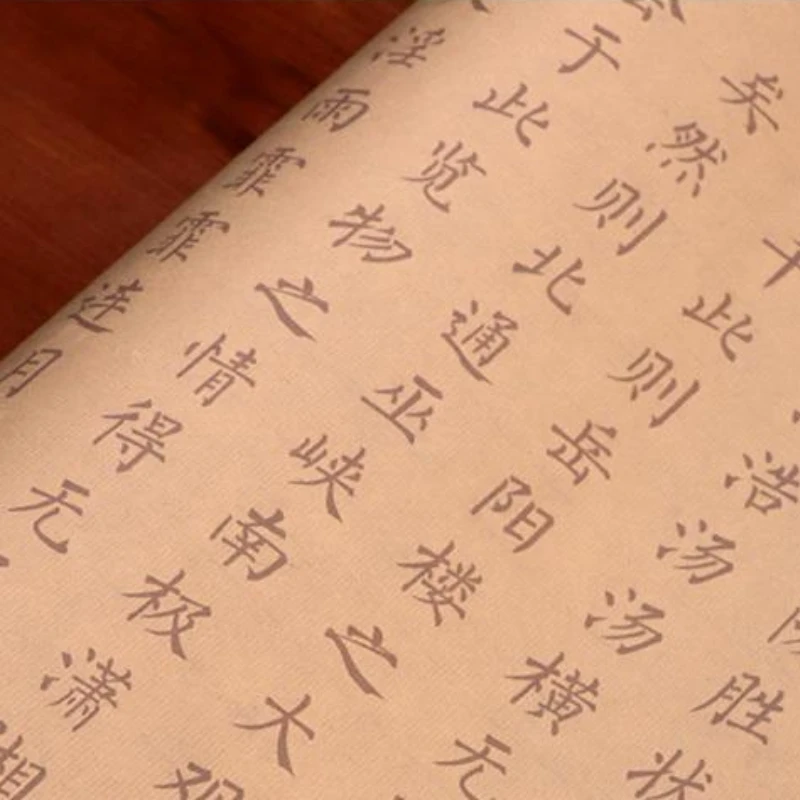 胜状
浩汤汤横无
此则岳阳楼之大观
矣然则北通巫峡南极潇湘
会于此览物之情得无
淫雨霏霏连月